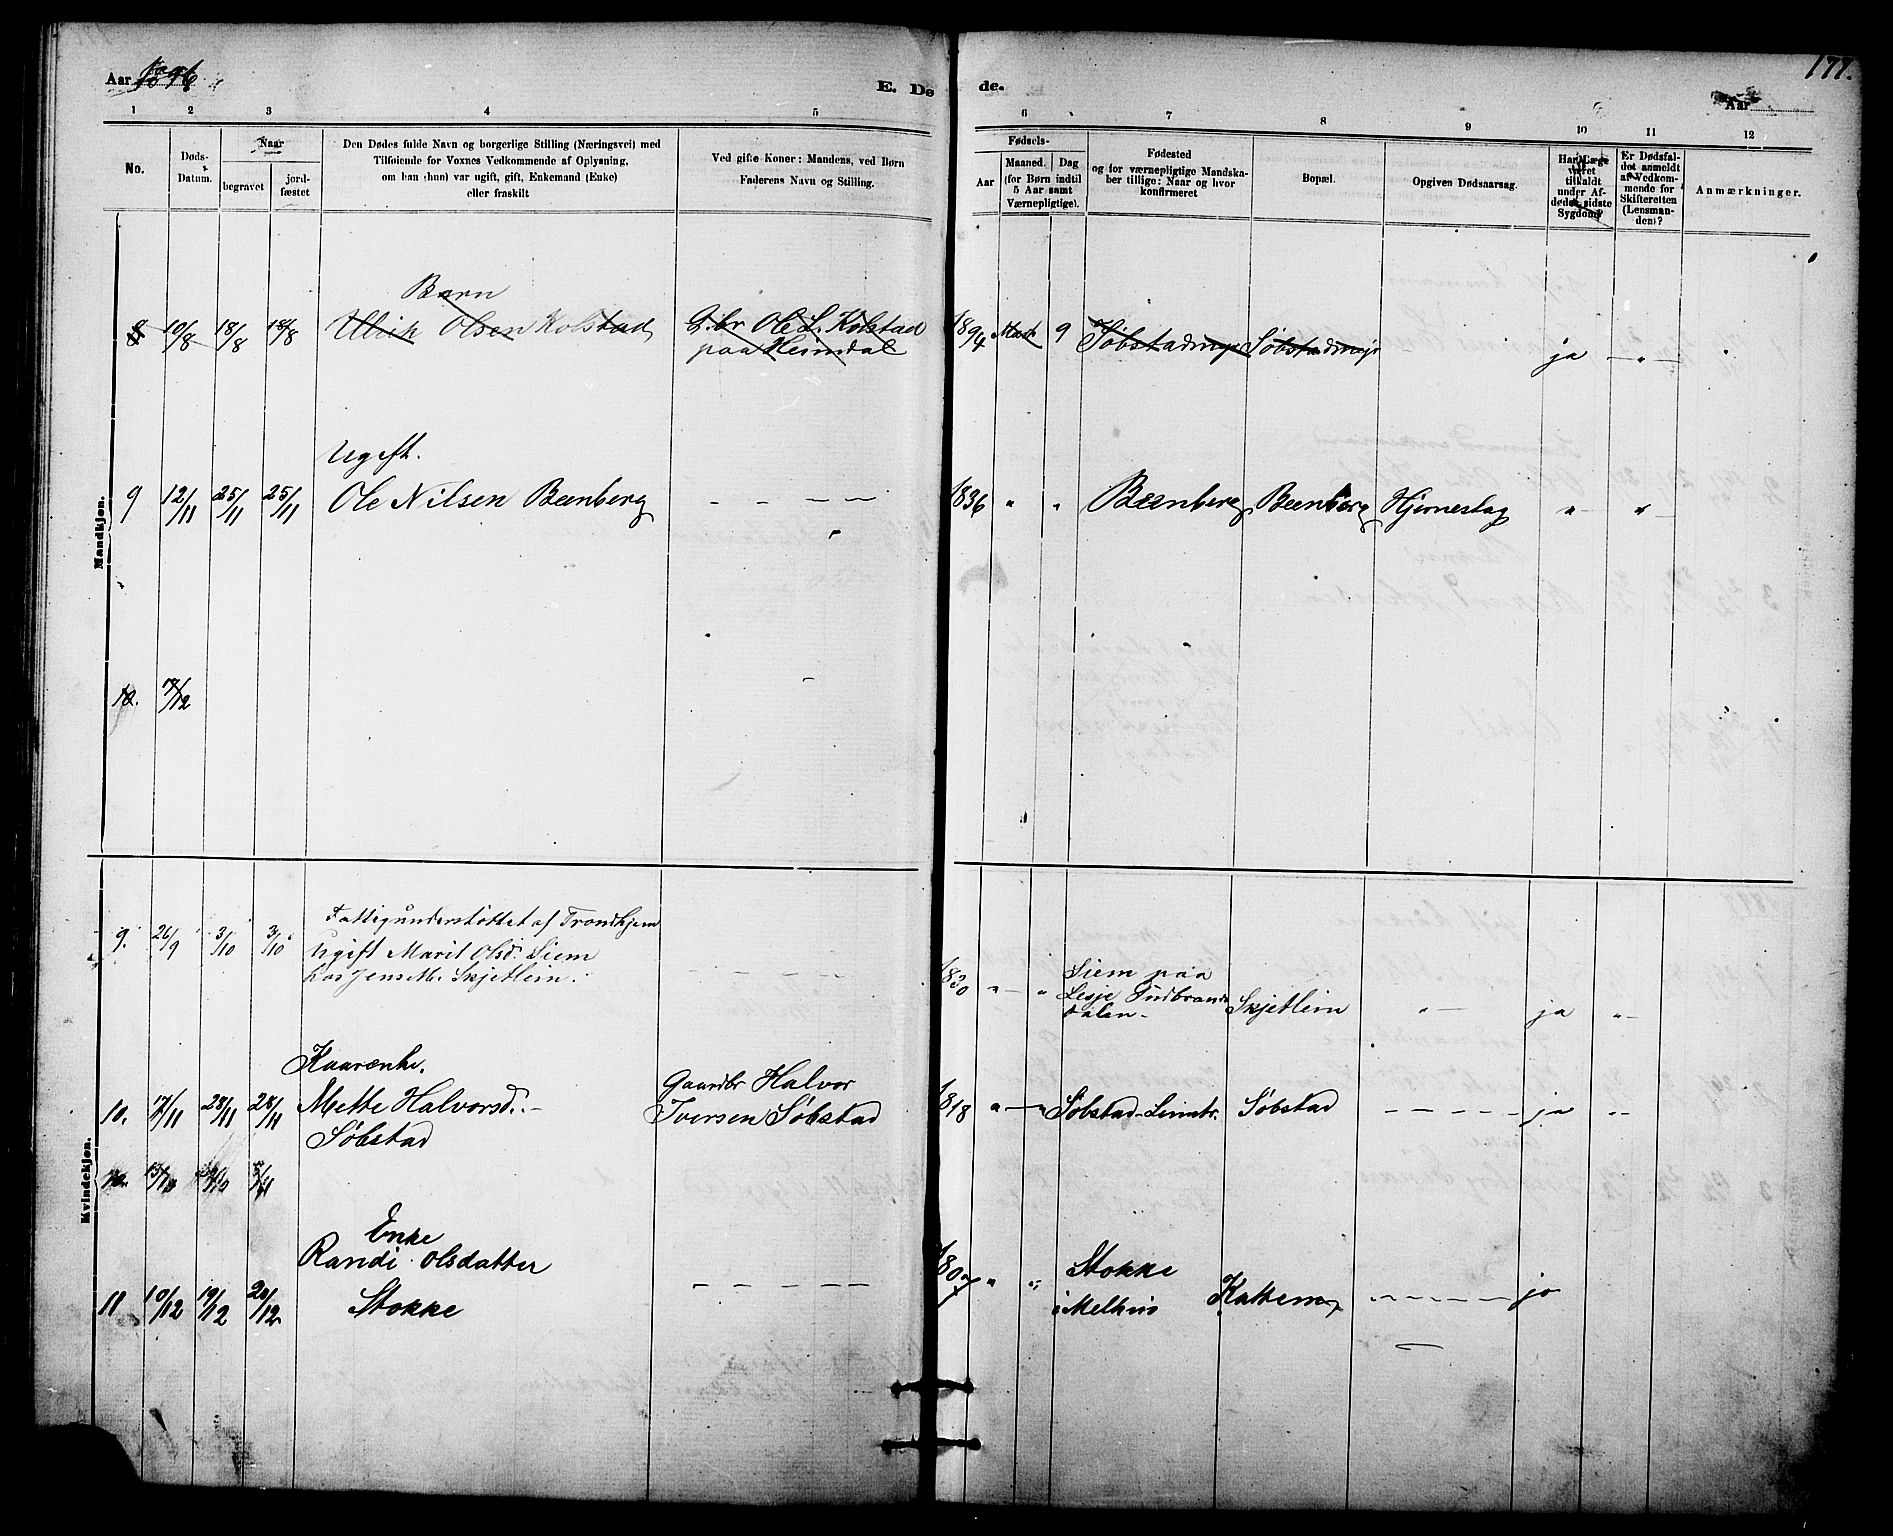 Aar 1896
E. Dø
de.
Aar
177.
1 2 3 4 5 6 7 8 9 10 11 12
No.
Døds-
Datum.
Naar
begravet
jord-
fæstet
Den Dødes fulde Navn og borgerlige Stilling (Næringsvei) med
Tilføiende for Voxnes Vedkommende af Oplysning,
om han (hun) var ugift, gift, Enkemand (Enke)
eller fraskilt
Ved gifte Koner: Mandens, ved Børn
Faderens Navn og Stilling.
Fødsels-
Aar
Maaned. Dag
(for Børn indtil
5 Aar samt
Værnepligtige).
Fødested
og for værnepligtige Mandska-
ber tillige: Naar og hvor
konfirmeret
Bopæl.
Opgiven Dødsaarsag.
Har Læge
været
tilkaldt
under Af-
dødes sidste
Sygdom?
Er Dødsfal-
det anmeldt
af Vedkom-
mende for
Skifteretten
(Lensman-
den)?
Anmærkninger.
Mandkjøn.
Barn
8 10/8 18/8 18/8 Ulrik Olsen Kolstad G.br Ole L. Kolstad 1894 9 Søbstadmyr Søbstadmyr
paa Heimdal ja — „ —
Ugift.
9 12/11 25/11 25/11 Ole Nilsen Beenberg — — — — 1836 „ „ Beenberg Beenberg Hjerneslag „ „
10. 7/12
Kvindekjøn.
Fattigunderstøttet af Trondhjem
9. 26/9 3/10 3/10 Ugift Marit Olsd. Siem
hos Jens M. Skjetlein. 1830 „ — „ Siem paa
Lesje Gudbrands
dalen — Skjetlein „ — ja „ —
Kaarenke.
10. 17/11 28/11 28/11 Mette Halvorsd. — Gaardbr Halvor
Søbstad Iversen Søbstad 1818 „ — „ Søbstad-Leinstr. Søbstad — — — — ja „ —
Enke
Randi Olsdatter
11 10/12 19/12 20/12 Stokke — — — — 1807 „ „ Stokke
i Melhus Kattem „ — — — — ja